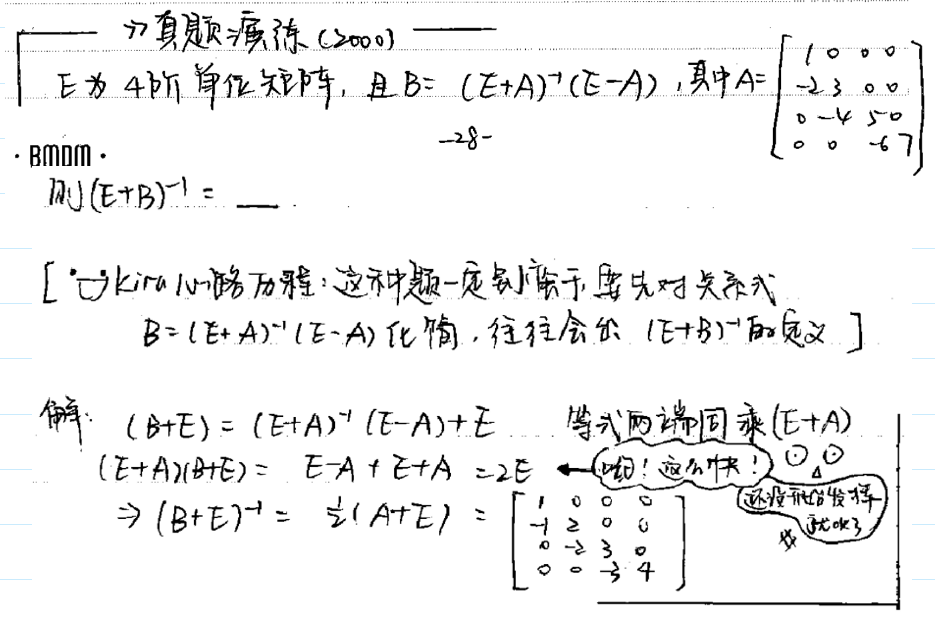 真题演练(2000)
E为4阶单位矩阵,且B=(E+A)⁻¹(E-A),其中A=
[1 0 0 0
-2 3 0 0
0 -4 5 0
0 0 -6 7]
-28-
·BMDM·
则(E+B)⁻¹= __.
[Kira心路历程:这种题一定要先对关系式
B=(E+A)⁻¹(E-A)化简,往往会出(E+B)⁻¹的定义]
解: (B+E)=(E+A)⁻¹(E-A)+E 等式两端同乘(E+A)
(E+A)(B+E)= E-A+E+A =2E ← 哟!这么快!
⇒(B+E)⁻¹= ½(A+E) =
[1 0 0 0
-1 2 0 0
0 -2 3 0
0 0 -3 4]
还没开始发挥
就ok了